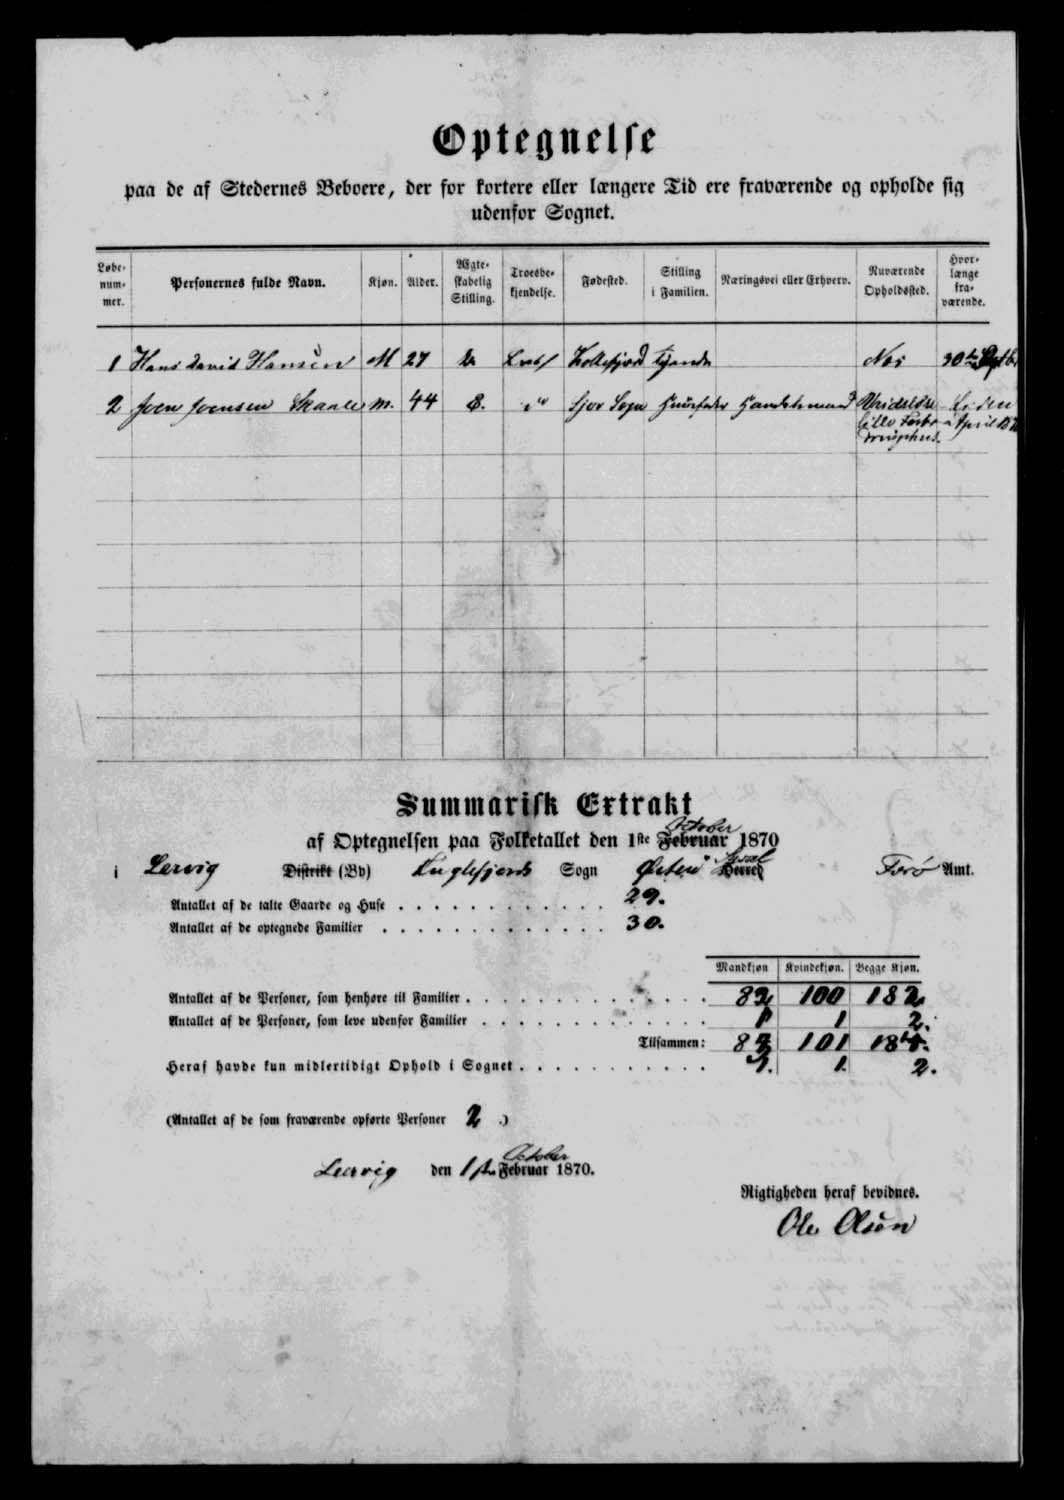 Optegnelse
paa de af Stedernes Beboere, der for kortere eller længere Tid ere fraværende og opholde sig
udenfor Sognet.
Løbe-nummer. Personernes fulde Navn. Kjøn. Alder. Ægteskabelig Stilling. Troesbe-kjendelse. Fødested. Stilling i Familien. Næringsvei eller Erhverv. Nuværende Opholdssted. Hvor-længe fra-værende.
1 Hans David Hansen M 27 Kollefjord tjende Nes 30te Septbr
2 Joen Joensen Skaale M. 44 E. do Sjov Sogn Huusfader Handelsmand
April
Summarisk Extrakt
October
af Optegnelsen paa Folketallet den 1ste Februar 1870
i Lervig Distrikt (By) Fuglefjords Sogn Østerø Syssel Herred Færø Amt.
Antallet af de talte Gaarde og Huse 29.
Antallet af de optegnede Familier 30.
Mandkjøn Kvindekjøn. Begge Kjøn.
Antallet af de Personer, som henhøre til Familier 82 100 182
Antallet af de Personer, som leve udenfor Familier 1 1 2.
Tilsammen: 83 101 184.
Heraf havde kun midlertidigt Ophold i Sognet 1. 1. 2.
(Antallet af de som fraværende opførte Personer 2 .)
October
Learvig den 1ste Februar 1870.
Rigtigheden heraf bevidnes.
Ole Olsen